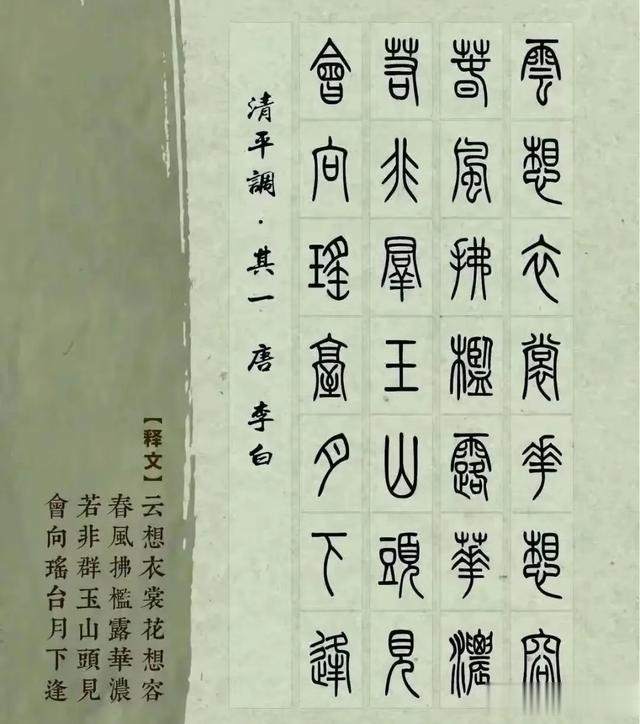 雲想衣裳華想容
萅風拂檻露華濃
若非羣玉山頭見
會向瑤臺月下逢
清平調·其一 唐 李白
【释文】
云想衣裳花想容
春風拂檻露華濃
若非群玉山頭見
會向瑤台月下逢